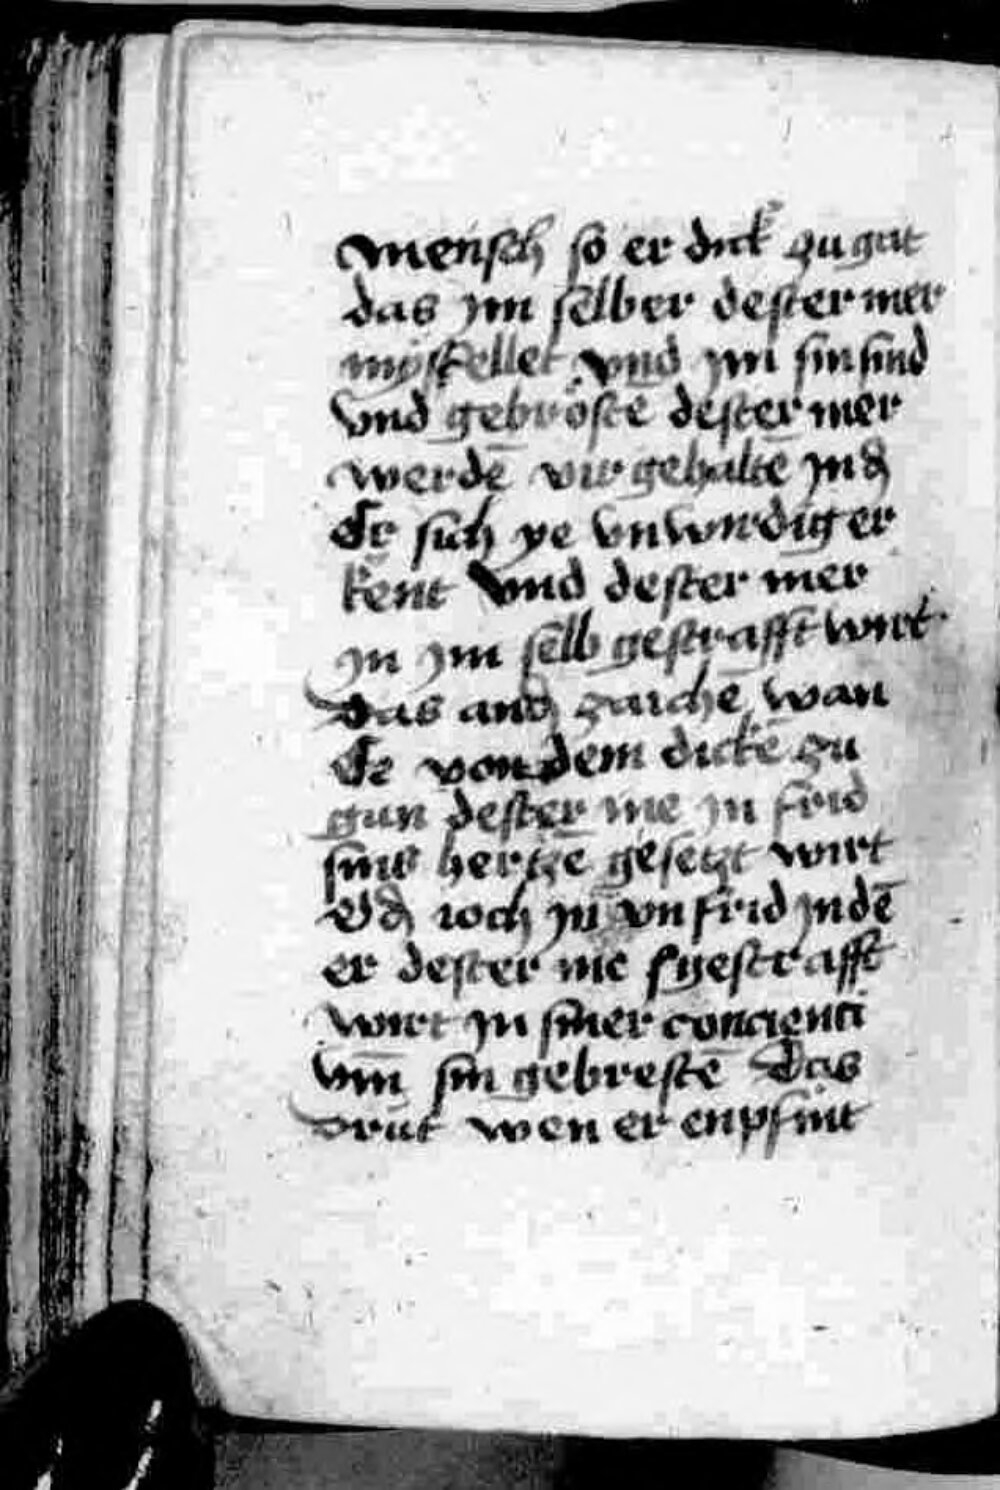 mensch so er dick zu gat
das jm selber dester mer
mysfellet vnd jm sin sind
vnd gebröste dester mer
werdē vir gehaltē jn d
Er sich ye vnwirdiger
kent vnd dester mer
jn jm selb gestrafft wirt
das and zaichē wan
Er von dem dickē zu
gan dester me jn frid
sins hertzē gesetzt wirt
Od ioch jn vnfrid jn dē
er dester me gestrafft
wirt jn siner concienci
vm̄ sin gebrestē Das
drit wen er enpfint